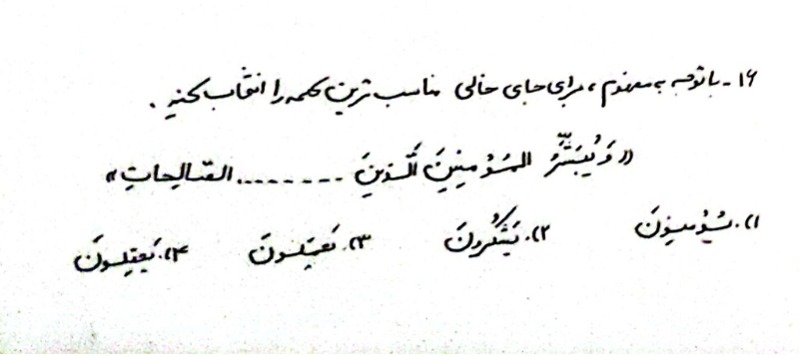 ۱۶- با توجه به مفهوم، برای جای خالی مناسب ترین کلمه را انتخاب کنید.
«وَ یُبَشِّرُ المُؤمِنِینَ الَّذِینَ -------- الصّالِحاتِ»
۱). یُؤمِنونَ ۲). یَشکُرونَ ۳). یَعمَلونَ ۴). یَعقِلونَ